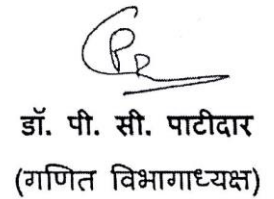 डॉ. पी. सी. पाटीदार
(गणित विभागाध्यक्ष)